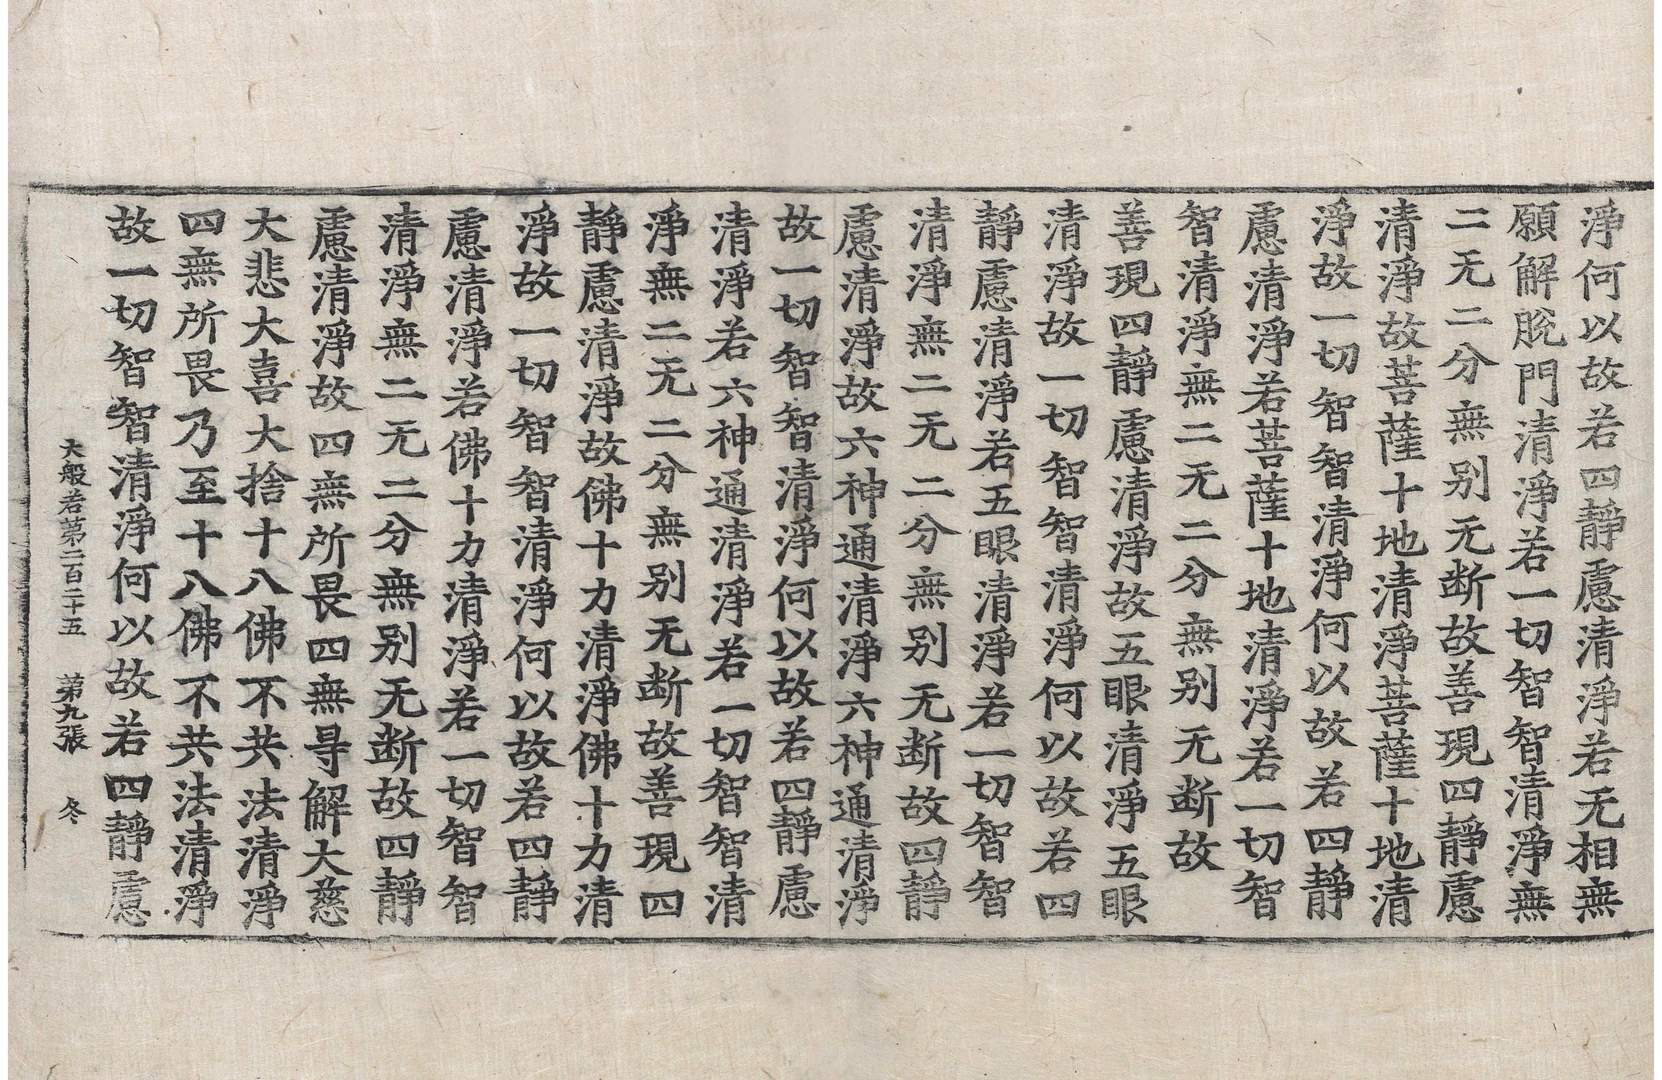 淨何以故若四靜慮清淨若无相無
願解脫門清淨若一切智智清淨無
二无二分無别无断故善現四靜慮
清淨故菩薩十地清淨菩薩十地清
淨故一切智智清淨何以故若四靜
慮清淨若菩薩十地清淨若一切智
智清淨無二无二分無别无断故
善現四靜慮清淨故五眼清淨五眼
清淨故一切智智清淨何以故若四
靜慮清淨若五眼清淨若一切智智
清淨無二无二分無别无断故四靜
慮清淨故六神通清淨六神通清淨
故一切智智清淨何以故若四靜慮
清淨若六神通清淨若一切智智清
淨無二无二分無别无断故善現四
靜慮清淨故佛十力清淨佛十力清
淨故一切智智清淨何以故若四靜
慮清淨若佛十力清淨若一切智智
清淨無二无二分無别无断故四靜
慮清淨故四無所畏四無㝵解大慈
大悲大喜大捨十八佛不共法清淨
四無所畏乃至十八佛不共法清淨
故一切智智清淨何以故若四靜慮
大般若第二百二十五 第九張 冬